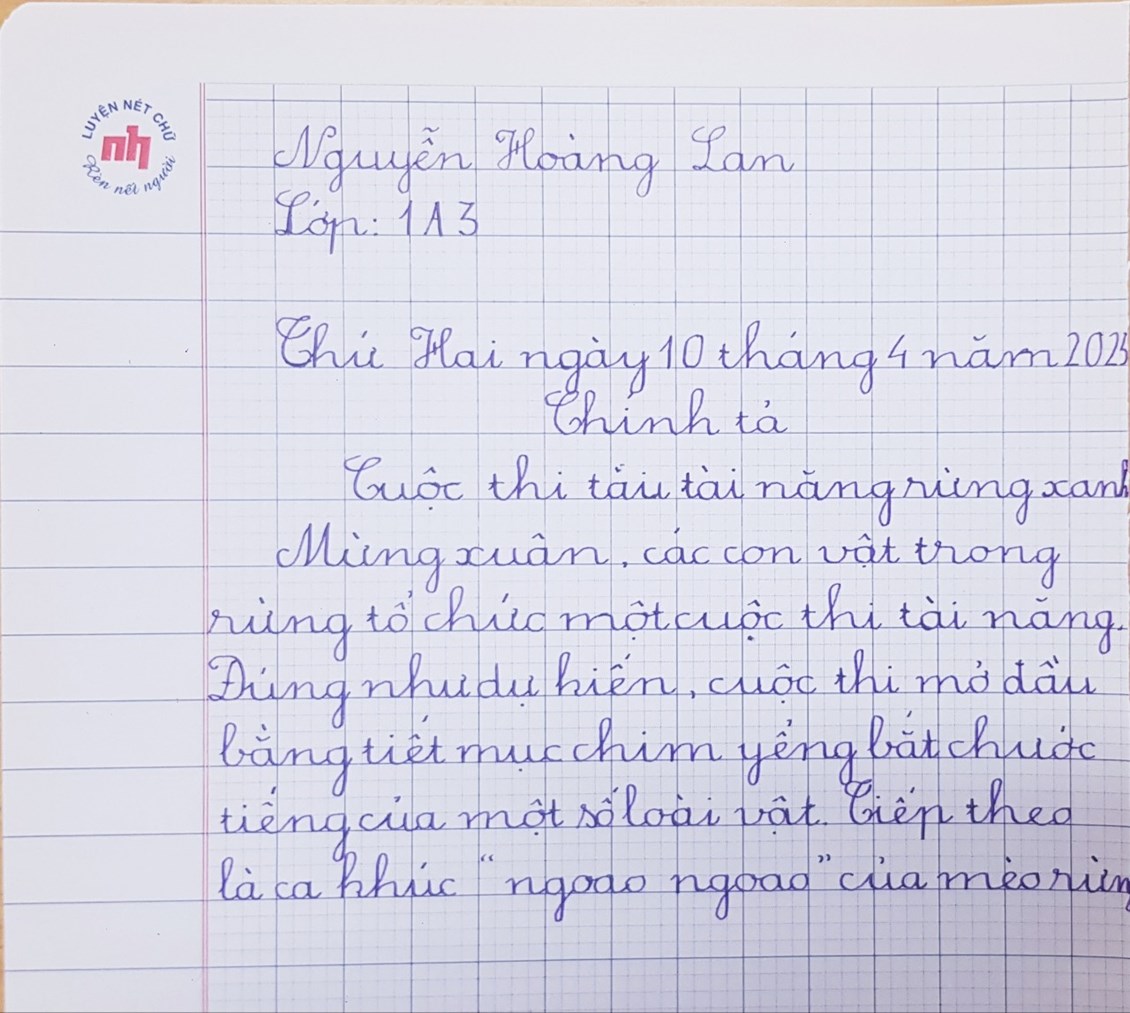 LUYỆN NÉT CHỮ
nh
Rèn nết người
Nguyễn Hoàng Lan
Lớp: 1A3
Thứ Hai ngày 10 tháng 4 năm 2023
Chính tả
Cuộc thi tài tài năng rừng xanh
Mừng xuân, các con vật trong
rừng tổ chức một cuộc thi tài năng.
Đúng như dự kiến, cuộc thi mở đầu
bằng tiết mục chim yểng bắt chước
tiếng của một số loài vật. Tiếp theo
là ca khúc "ngoao ngoao" của mèo rừng